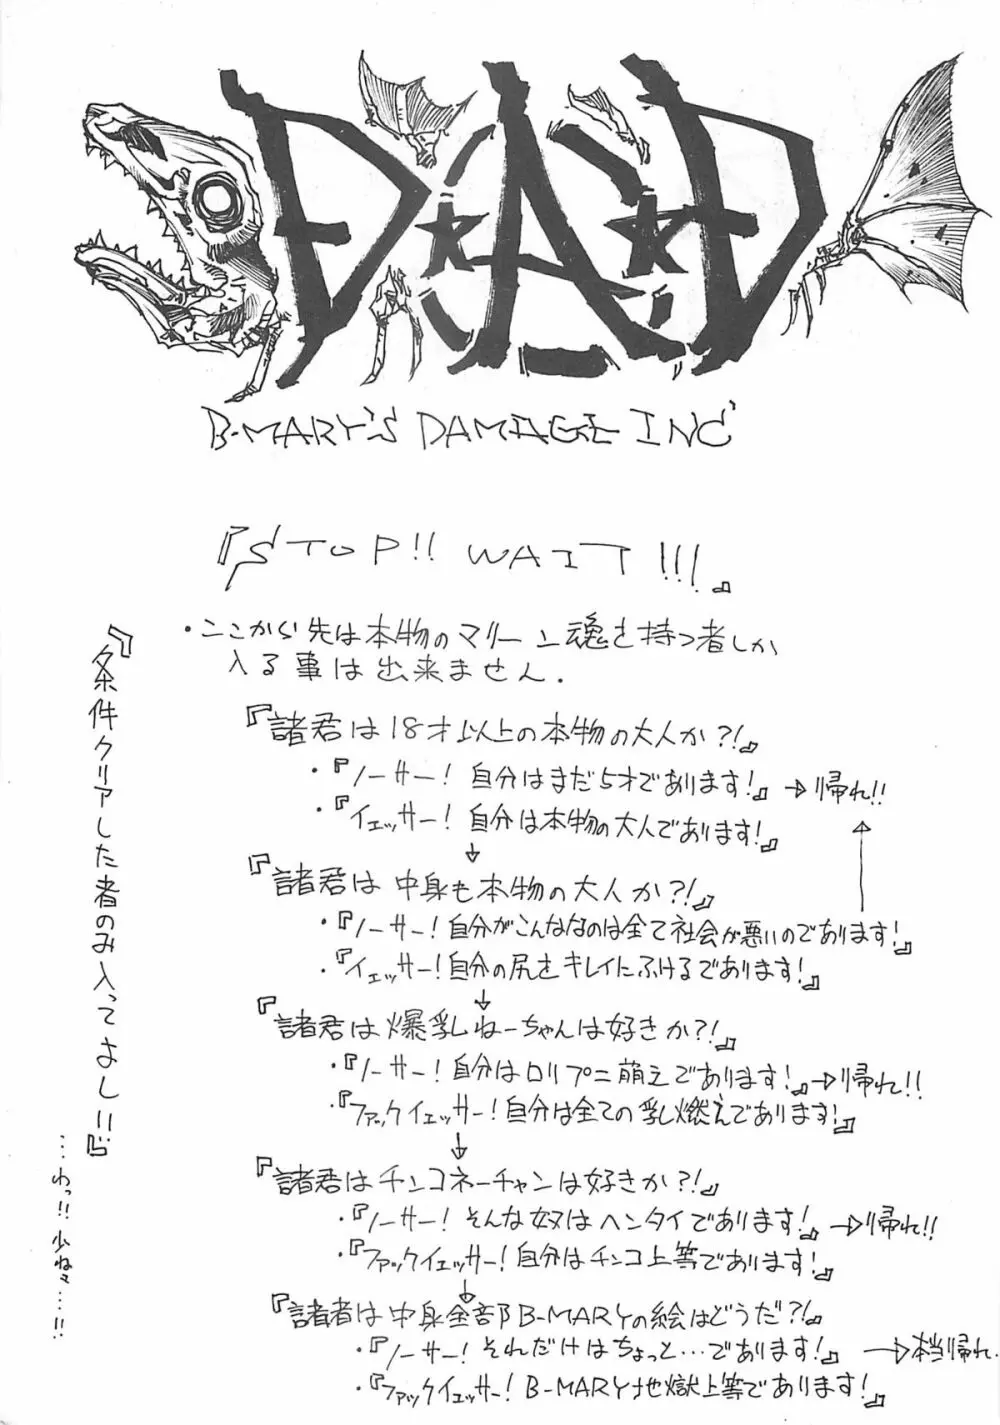 D★A★D
B-MARY'S DAMAGE INC'
『STOP!! WAIT!!!』
・ここから先は本物のマリーン魂を持つ者しか
入る事は出来ません.
『諸君は18才以上の本物の大人か?!』
・『ノーサー! 自分はまだ5才であります!』→帰れ!!
・『イエッサー! 自分は本物の大人であります!』
↓
『諸君は中身も本物の大人か?!』
・『ノーサー! 自分がこんななのは全て社会が悪いのであります!』
・『イエッサー! 自分の尻をキレイにふけるであります!』
↓
『諸君は爆乳ねーちゃんは好きか?!』
・『ノーサー! 自分はロリプニ萌えであります!』→帰れ!!
・『ファックイエッサー! 自分は全ての乳燃えであります!』
↓
『諸君はチンコネーチャンは好きか?!』
・『ノーサー! そんな奴はヘンタイであります!』→帰れ!!
・『ファックイエッサー! 自分はチンコ上等であります!』
↓
『諸者は中身全部B-MARYの絵はどうだ?!』
・『ノーサー! それだけはちょっと…であります!』→本当帰れ.
・『ファックイエッサー! B-MARY地獄上等であります!』
『条件クリアした者のみ入ってよし!!』
…わっ!! 少ねぇ…!!